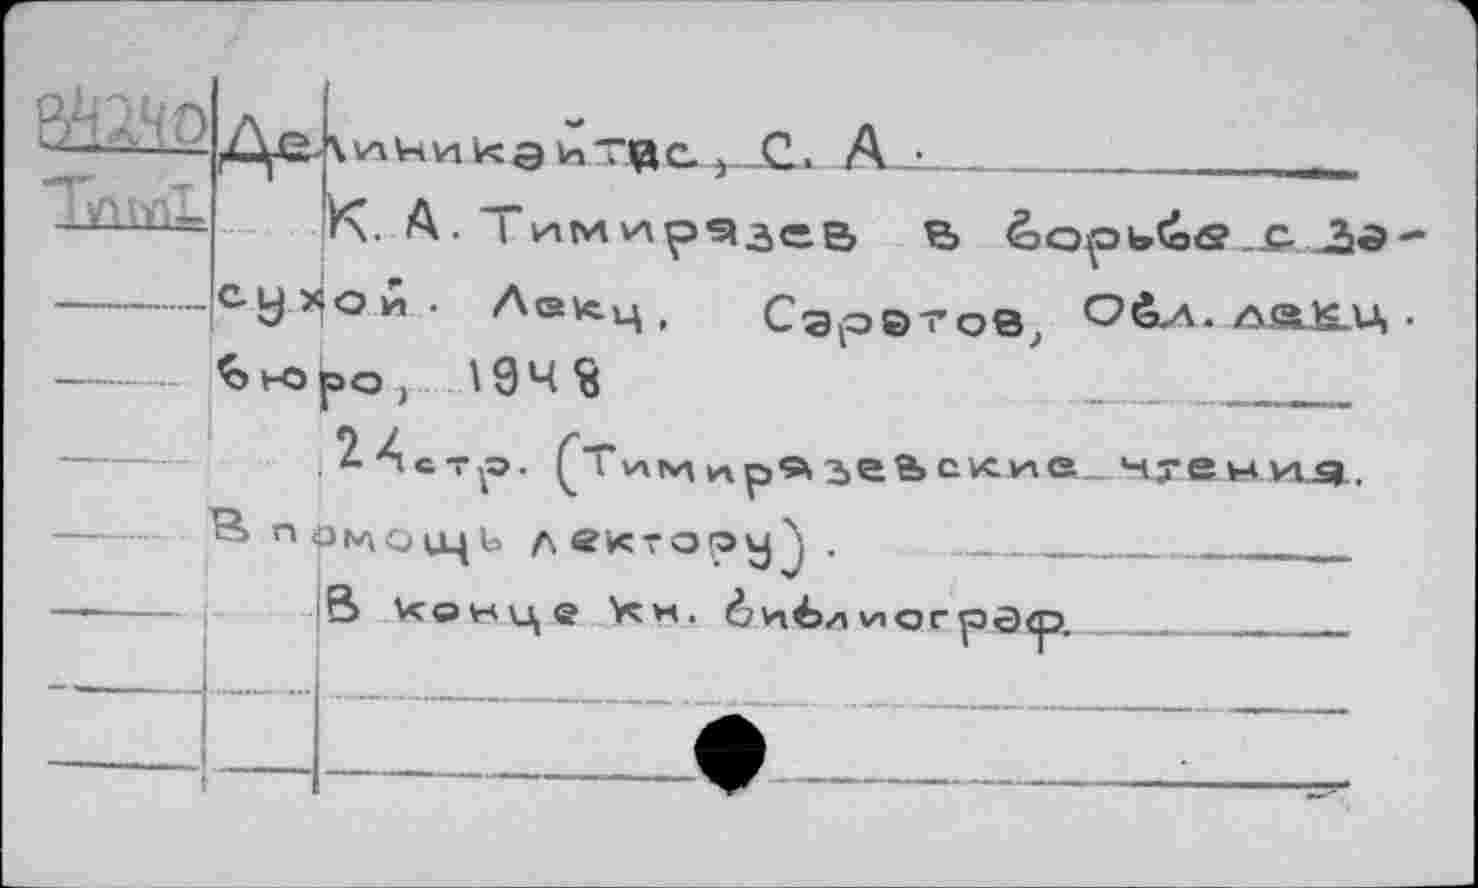 В4240 Делиникайтис, С. А.
Тим1 К. А. Тимирязев в борьбе с за-
сухой. Лекц. Саратов, Обл. лекц.
бюро, 1948
24стр. (Тимирязевские чтения.
В помощь лектору).
В конце кн. библиограф.